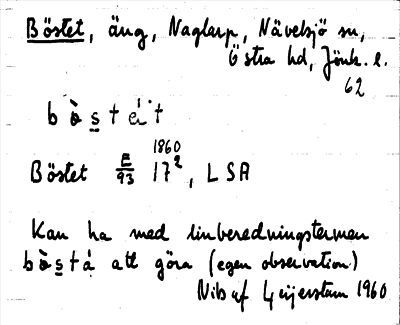 Böstet, äng, Naglarp, Nävelsjö sn,
Östra hd, Jönk. l.
62
bö̀stét
1860
Böstet E/93 17², LSA
Kan ha med linberedningstermen
bö̀stá att göra (egen observation)
Nils af Geijerstam 1960